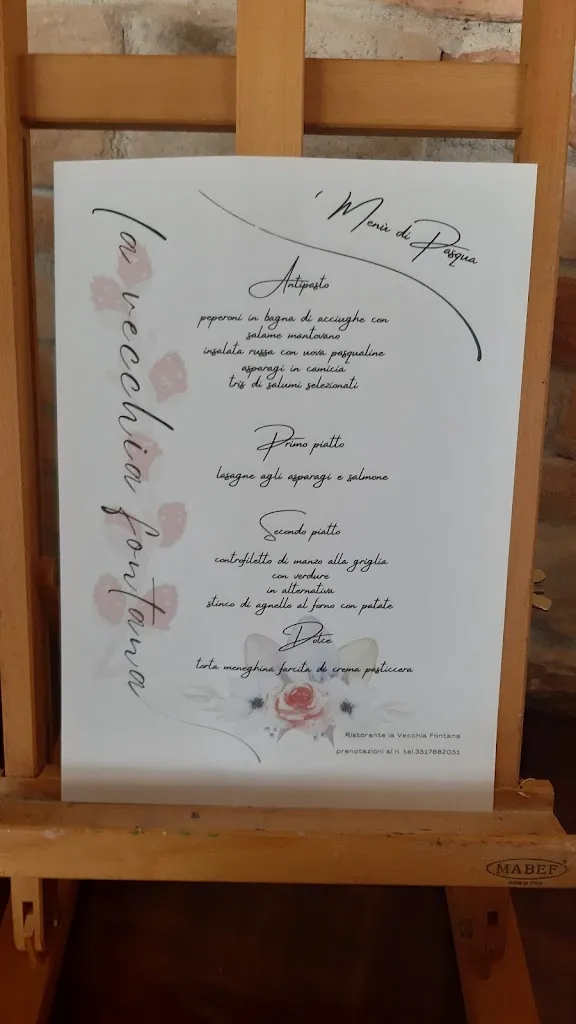 la vecchia fontana
Menù di Pasqua
Antipasto
peperoni in bagna di acciughe con
salame mantovano
insalata russa con uova pasqualine
asparagi in camicia
tris di salumi selezionati
Primo piatto
lasagne agli asparagi e salmone
Secondo piatto
controfiletto di manzo alla griglia
con verdure
in alternativa
stinco di agnello al forno con patate
Dolce
torta meneghina farcita di crema pasticcera
Ristorante la Vecchia Fontana
prenotazioni al n. tel.3517882051
MABEF